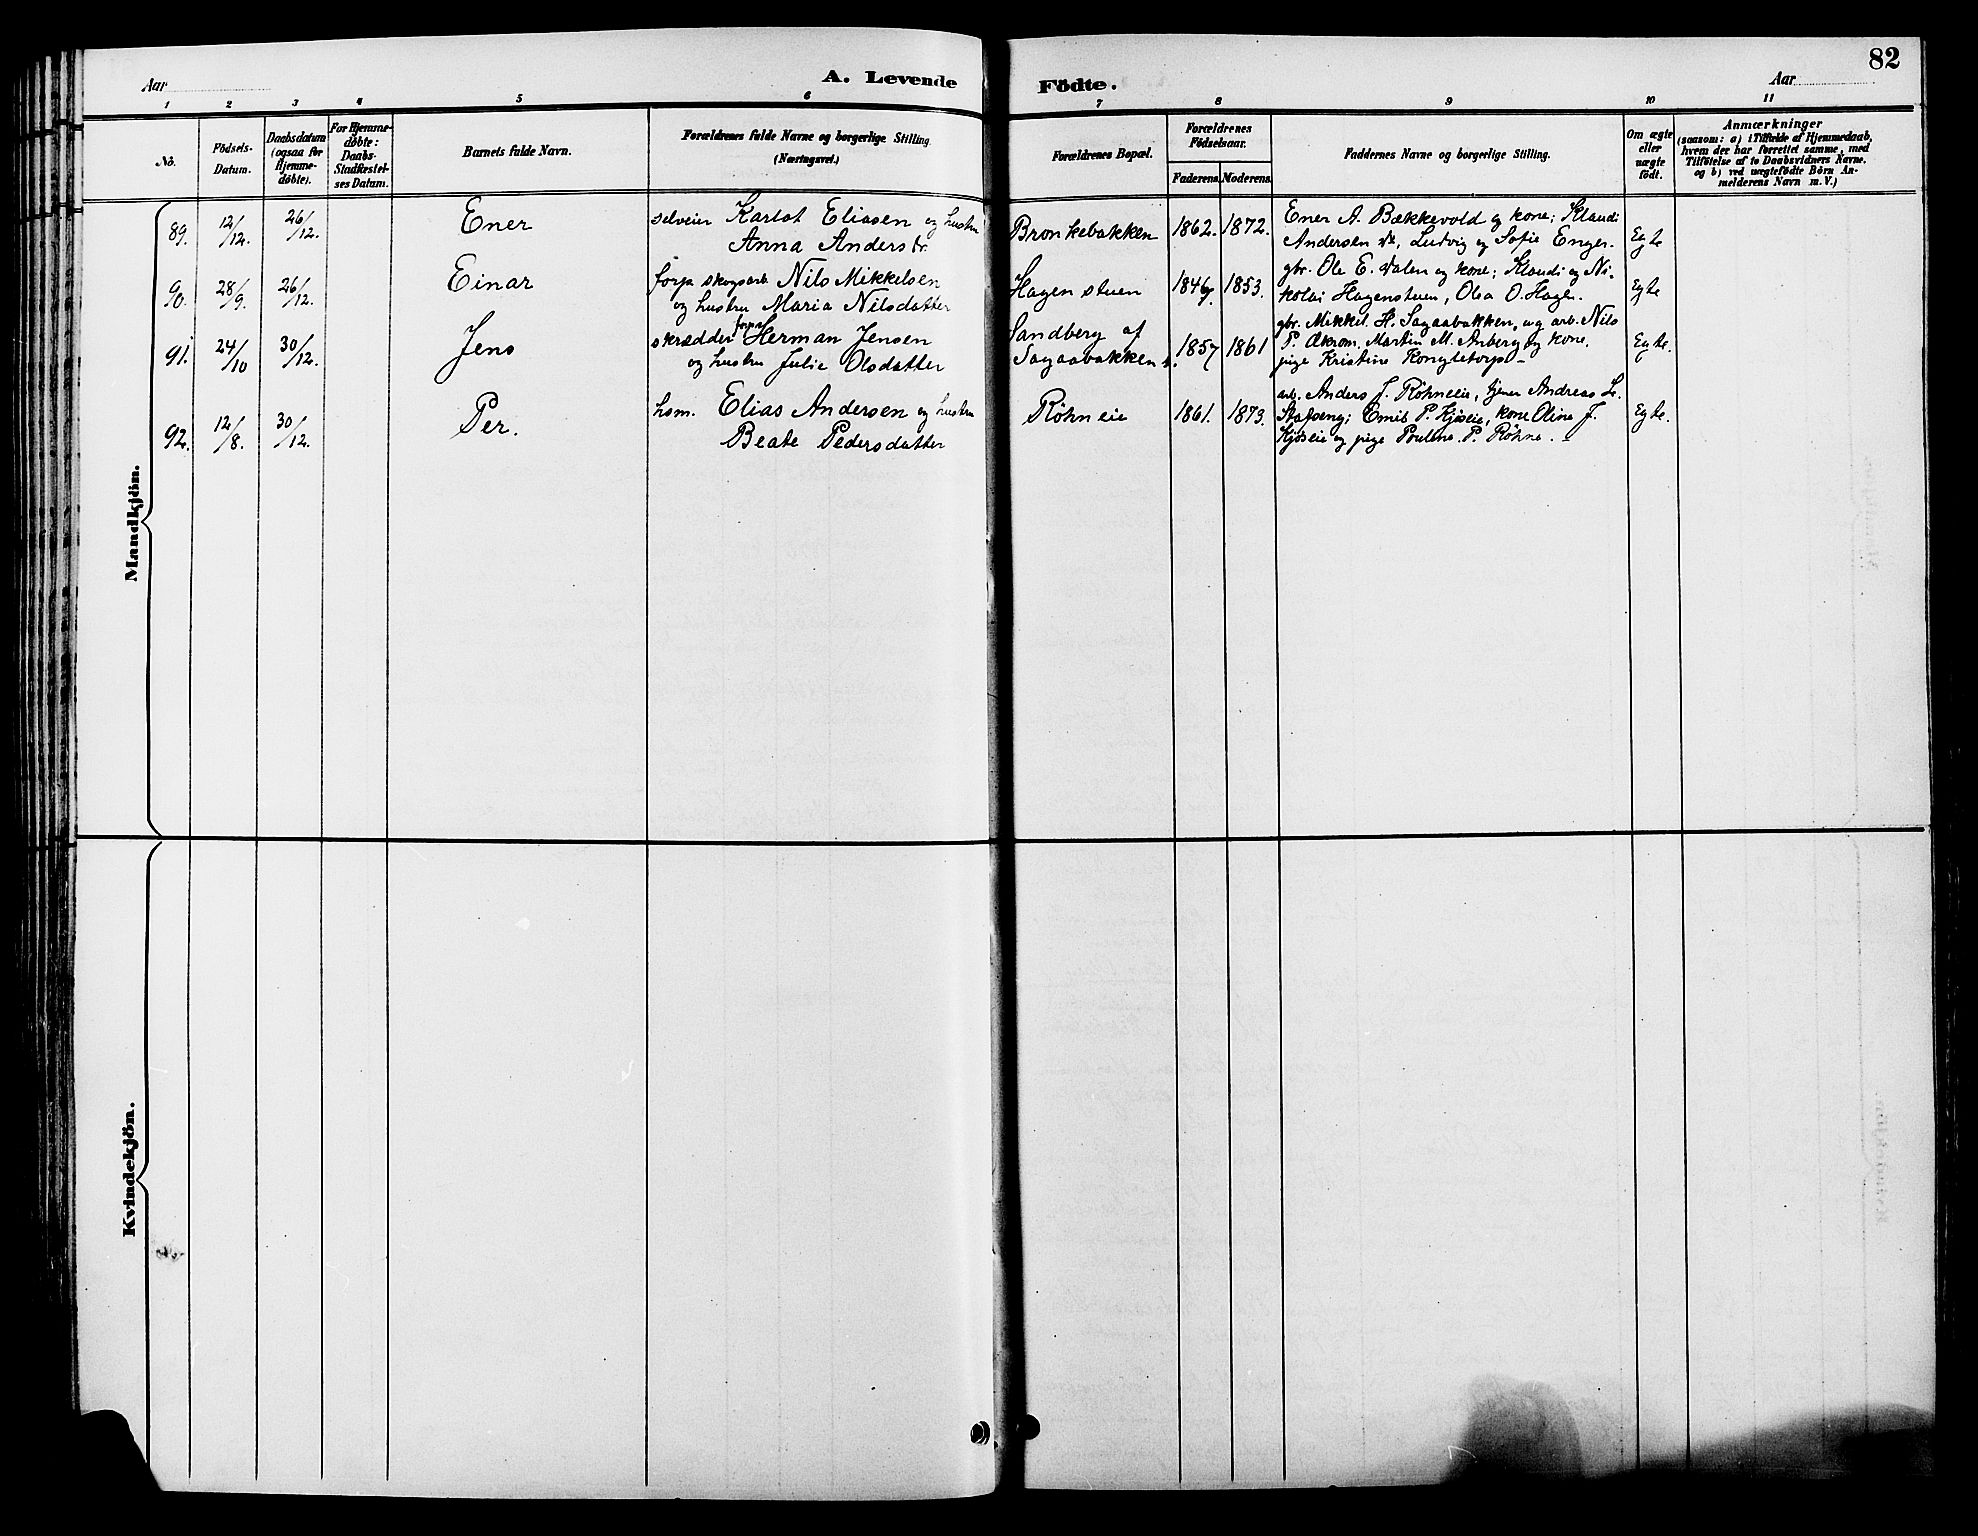 82
Aar
A. Levende
Födte.
Aar
1 2 3 4 5 6 7 8 9 10 11
Nô.
Födsels-
Datum.
Daabsdatum
(ogsaa for
Hjemme-
døbte).
For Hjemme-
døbte:
Daabs-
Stadfestel-
ses Datum.
Barnets fulde Navn.
Forældrenes fulde Navne og borgerlige Stilling.
(Næringsvei.)
Forældrenes Bopæl.
Forældrenes
Födselsaar.
Faderens. Moderens.
Faddernes Navne og borgerlige Stilling.
Om ægte
eller
uægte
født.
Anmærkninger
(saasom: a) i Tilfælde af Hjemmedaab,
hvem der har forrettet samme, med
Tilföielse af to Daabsvidners Navne,
og b) ved uægtefödte Börn An-
melderens Navn m. V.)
Mandkjön.
89. 12/12. 26/12. Ener
selveier Karlot Eliasen og hustru
Anna Andersdr.
Bronkebakken 1862. 1872.
Ener A. Bækkevold og kone; Klaudi
Andersen , Ludvig og Sofie Enger.
Egte
90. 28/9. 26/12. Einar
forp. skogsarb. Nils Mikkelsen
og hustru Maria Nilsdatter
Hagenstuen 1847. 1853.
gbr. Ole E. Dalen og kone; Klaudi og Ni-
kolai Hagenstuen, Olea O. Hagen.
Egte
91. 24/10 30/12. Jens
skrædder forp. Herman Jensen
og hustru Julie Olsdatter
Sandberg af
Sagaabakken. 1857 1861
gbr. Mikkel H. Sagaabakken, ug. arb. Nils
P. Økrom, Martin M. Anberg og kone,
pige Kristine Kongletorp.
Egte.
92. 12/8. 30/12. Per.
hsm. Elias Andersen og hustru
Beate Pedersdatter
Röhneie 1861. 1873.
arb. Anders J. Röhneeie, tjener Andreas L.
Stafseng; Emil P. Kjöseie, kone Oline J.
Kjöseie og pige Pouline P. Röhne.
Egte.
Kvindekjön.